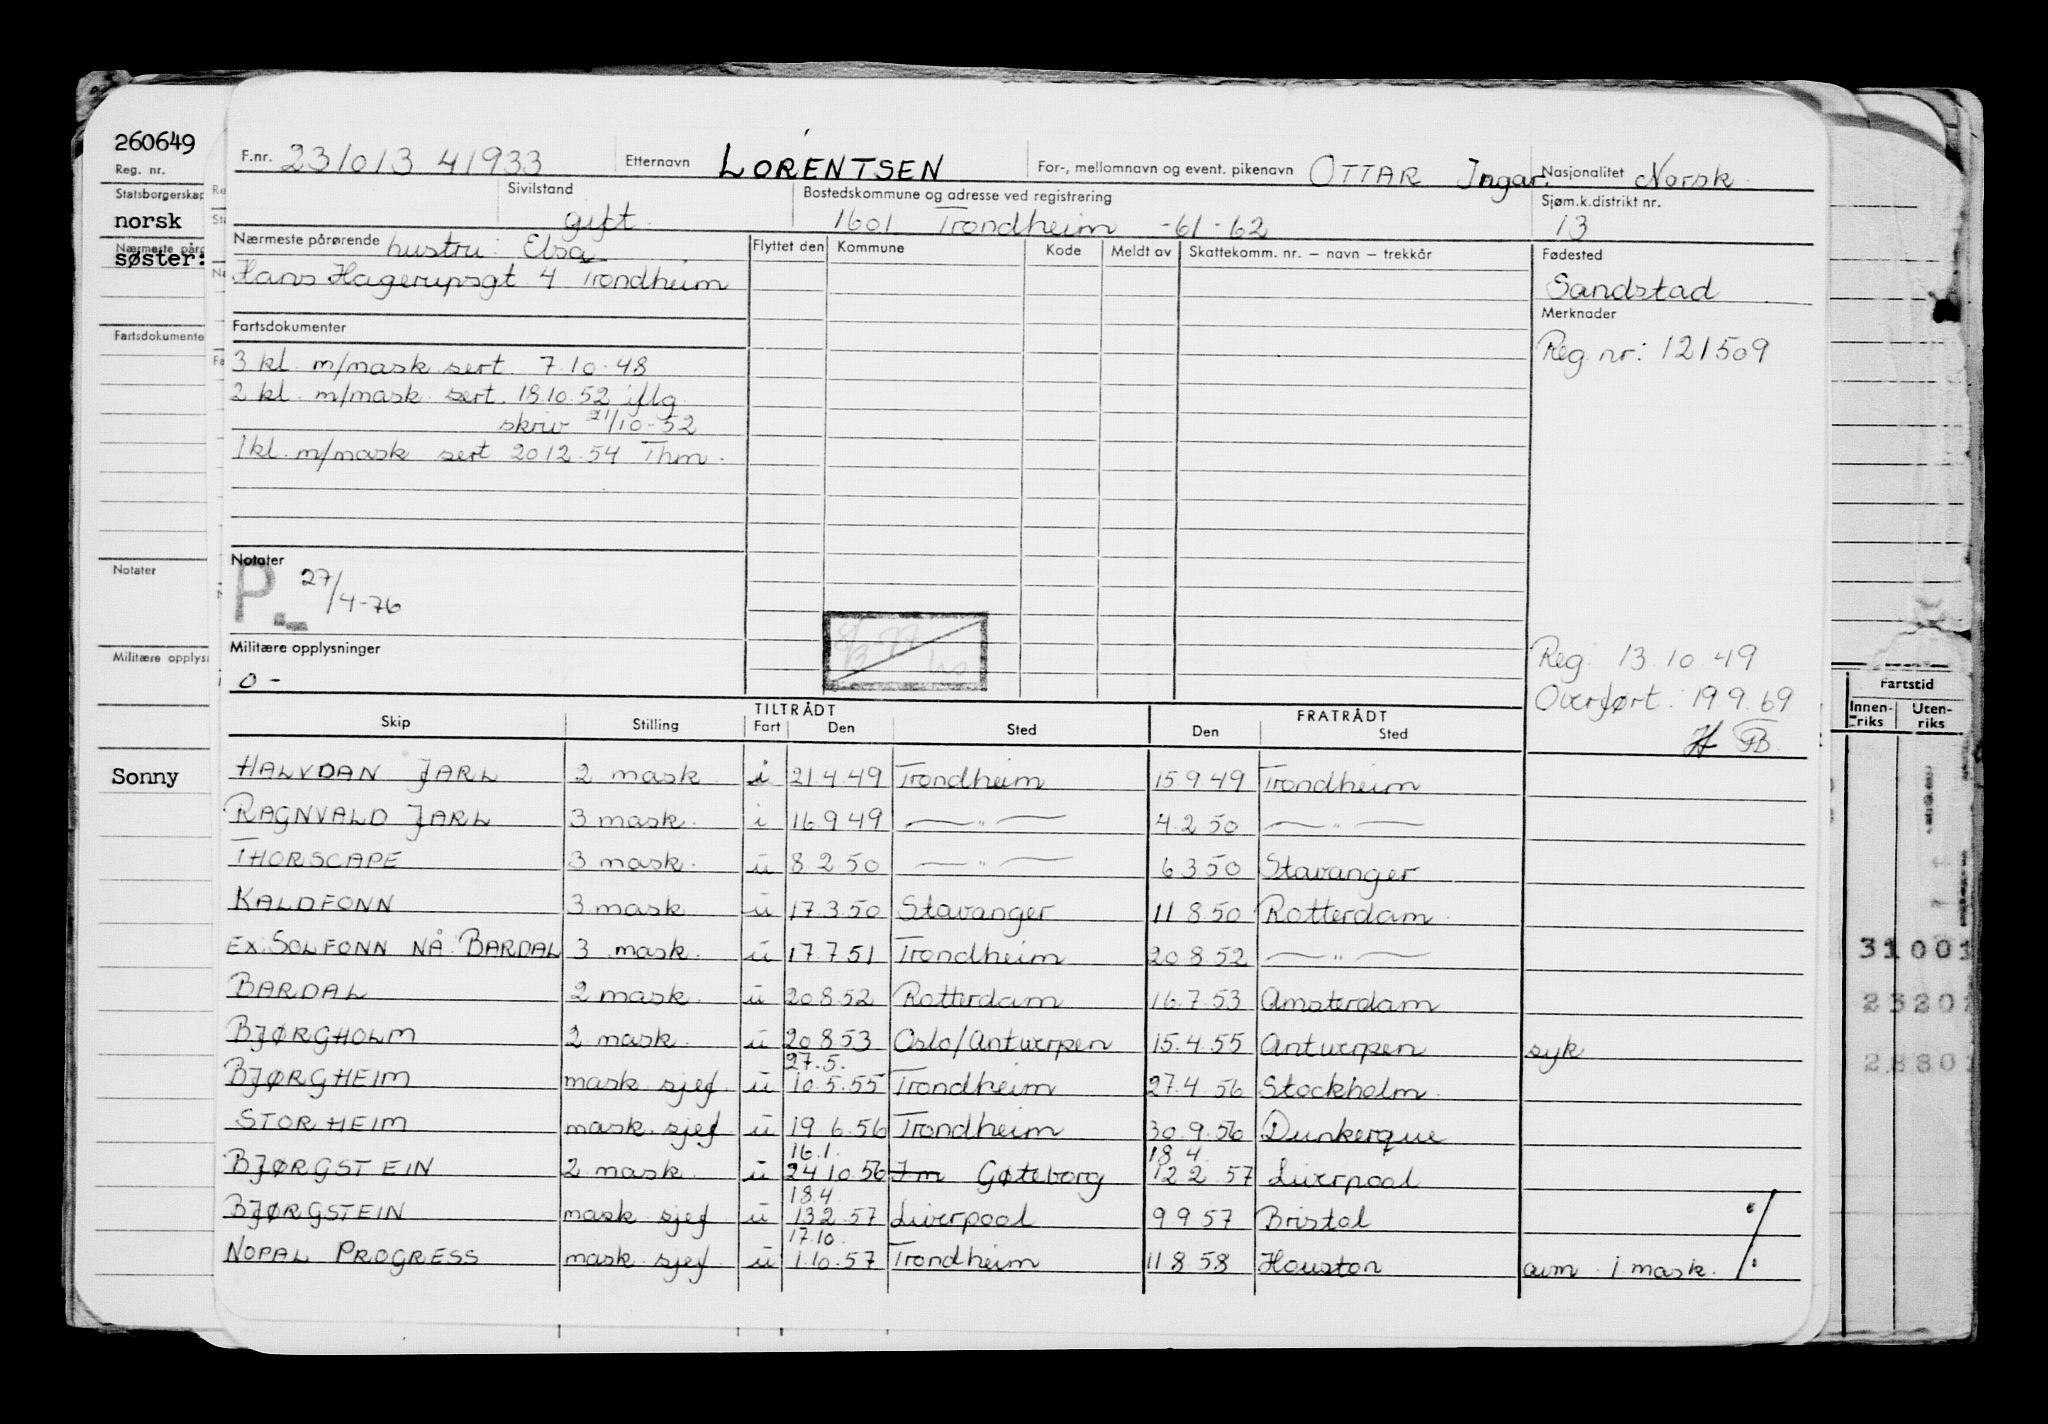 260649
Reg. nr.
Statsborgerskap
norsk
søster:
Fartsdokumente
Notater
Militære opplys
Sonny
F.nr. 231013 41933 Etternavn LORENTSEN For-, mellomnavn og event. pikenavn OTTAR Ingar Nasjonalitet Norsk
Sivilstand gift Bostedskommune og adresse ved registrering 1601 Trondheim -61-62 Sjøm.k.distrikt nr. 13
Nærmeste pårørende hustru: Elsa Flyttet den Kommune Kode Meldt av Skattekomm. nr. – navn – trekkår Fødested
Hans Hagerupsgt. 4 Trondheim Sandstad
Fartsdokumenter Merknader
3 kl. m/mask sert. 7.10.48 Reg. nr: 121509
2 kl. m/mask sert. 18.10.52 iflg.
skriv 21/10-52
1 kl. m/mask sert 20.12.54 Thm.
Notater
P. 27/4-76
Militære opplysninger Reg. 13.10.49
0 - Overført: 19.9.69
TILTRÅDT FRATRÅDT
Skip Stilling Fart Den Sted Den Sted
HALVDAN JARL 2 mask. i 21.4.49 Trondheim 15.9.49 Trondheim
RAGNVALD JARL 3 mask. i 16.9.49 — " — 4.2.50 — " —
THORSCAPE 3 mask. u 8.2.50 — " — 6.3.50 Stavanger
KALDFONN 3 mask. u 17.3.50 Stavanger 11.8.50 Rotterdam
EX. SOLFONN NÅ BARDAL 3 mask. u 17.7.51 Trondheim 20.8.52 — " —
BARDAL 2 mask. u 20.8.52 Rotterdam 16.7.53 Amsterdam
BJØRGHOLM 2 mask. u 20.8.53 Oslo/Antwerpen 15.4.55 Antwerpen syk
27.5.
BJØRGHEIM mask. sjef. u 10.5.55 Trondheim 27.4.56 Stockholm
STORHEIM mask. sjef. u 19.6.56 Trondheim 30.9.56 Dunkerque
16.1. 18.4.
BJØRGSTEIN 2 mask. u 24.10.56 Im Gøteborg 12.2.57 Liverpool
18.4.
BJØRGSTEIN mask. sjef u 13.2.57 Liverpool 9.9.57 Bristol
17.10.
NOPAL PROGRESS mask. sjef. u 1.10.57 Trondheim 11.8.58 Houston avm. 1 mask.
Fartstid
Innen-riks Uten-riks